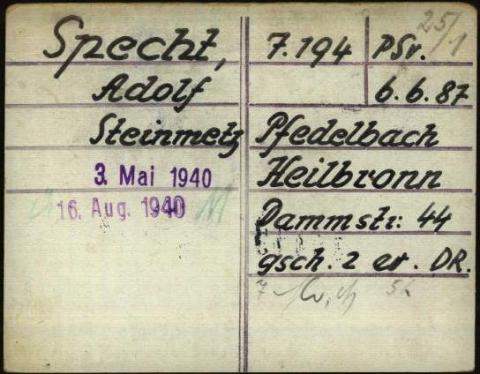 Specht,
Adolf
Steinmetz
3. Mai 1940
16. Aug. 1940
25/1
7.194 PSv.
6.6.87
Pfedelbach
Heilbronn
Dammstr: 44
gsch. 2 er. DR.